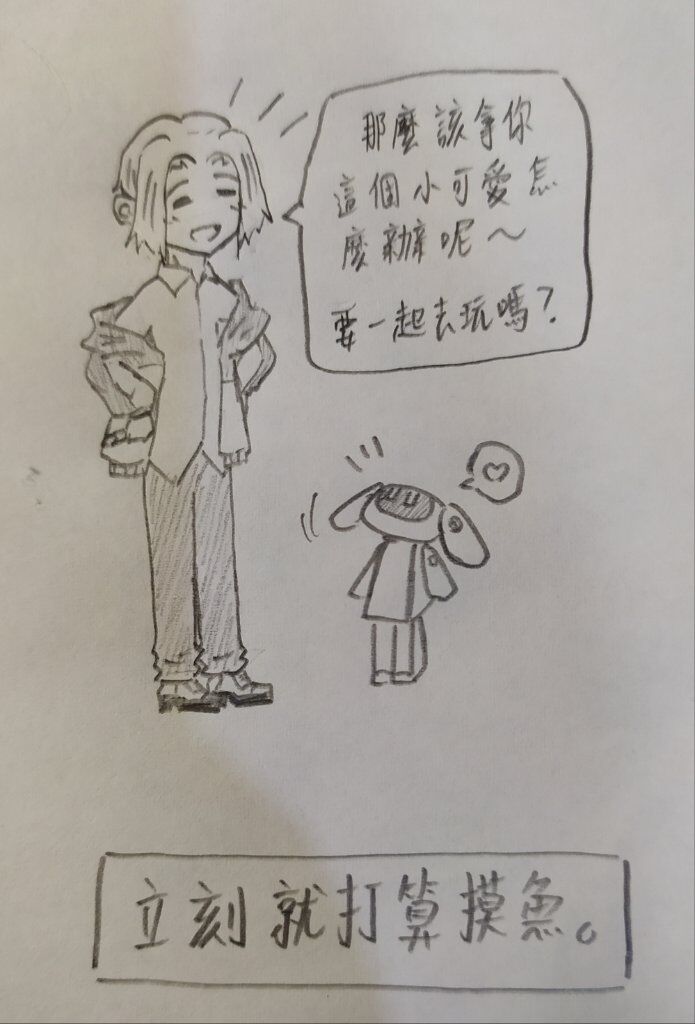 那麼該拿你
這個小可愛怎
麼辦呢～
要一起去玩嗎？
立刻就打算摸魚。